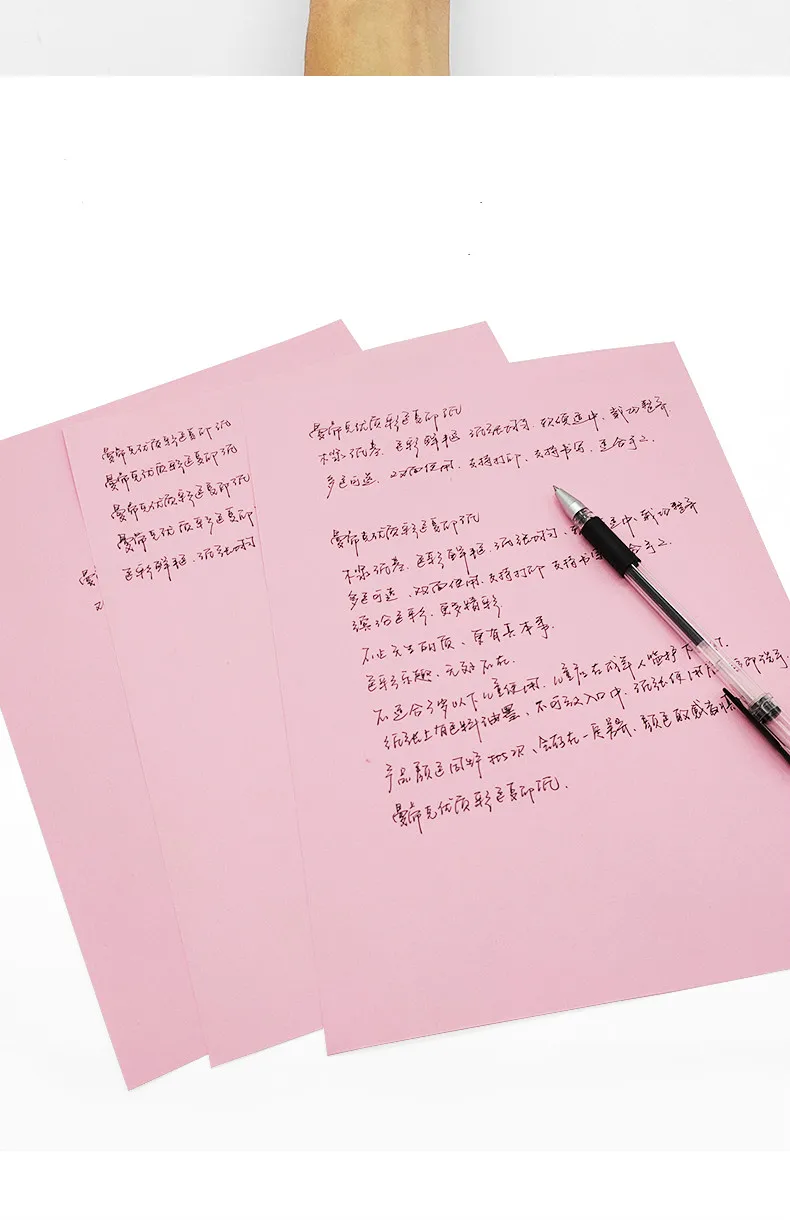 曼蒂克优质彩色复印纸
曼蒂克优质彩色复印纸
曼蒂克优质彩色复印纸
曼蒂克优质彩色复印
色彩鲜艳.纸张均匀
曼蒂克优质彩色复印纸
不掉纸屑.色彩鲜艳.纸张均匀.软硬适中、裁切整齐.
多色可选、双面使用.支持打印、支持书写、适合手工.
曼蒂克优质彩色复印纸
不掉纸屑.色彩鲜艳.纸张均匀、适中、裁切整齐
多色可选、双面使用.支持打印 支持书 合手工.
缤纷色彩、更多精彩
不止天生丽质、更有真本事.
色彩乐趣、无处不在.
不适合3岁以下儿童使用.儿童应在成年人监护下
纸张上有色料油墨、不可放入口中.纸张使用
产品颜色因生产批次、会存在一定差异.颜色敏感者慎
曼蒂克优质彩色复印纸.